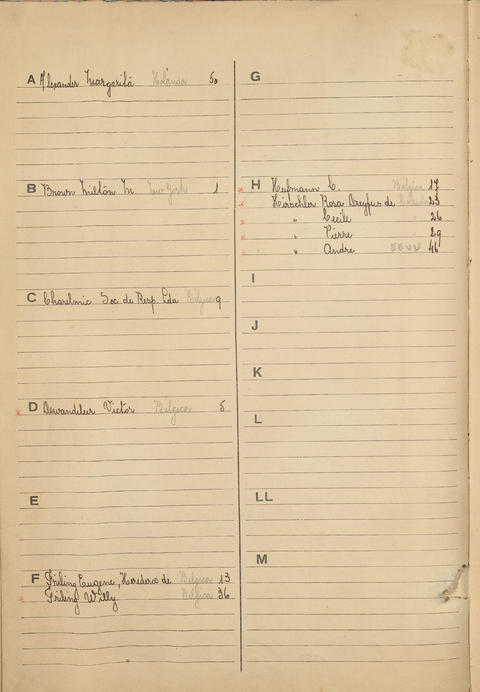 A Alexander Margarita Holanda 50
B Brown Milton M. New York 1
C Charelmic Soc. de Resp. Lda Belgica 9
D Dewandeleer Victor Belgica 5
E
F Friling Eugene, Herederos de Belgica 13
Friling Willy Belgica 36
G
H Hufmann C. Belgica 17
Hirschler Rosa Dreyfus de 23
" Cecile 26
" Pierre 29
" Andre EEUU 46
I
J
K
L
LL
M